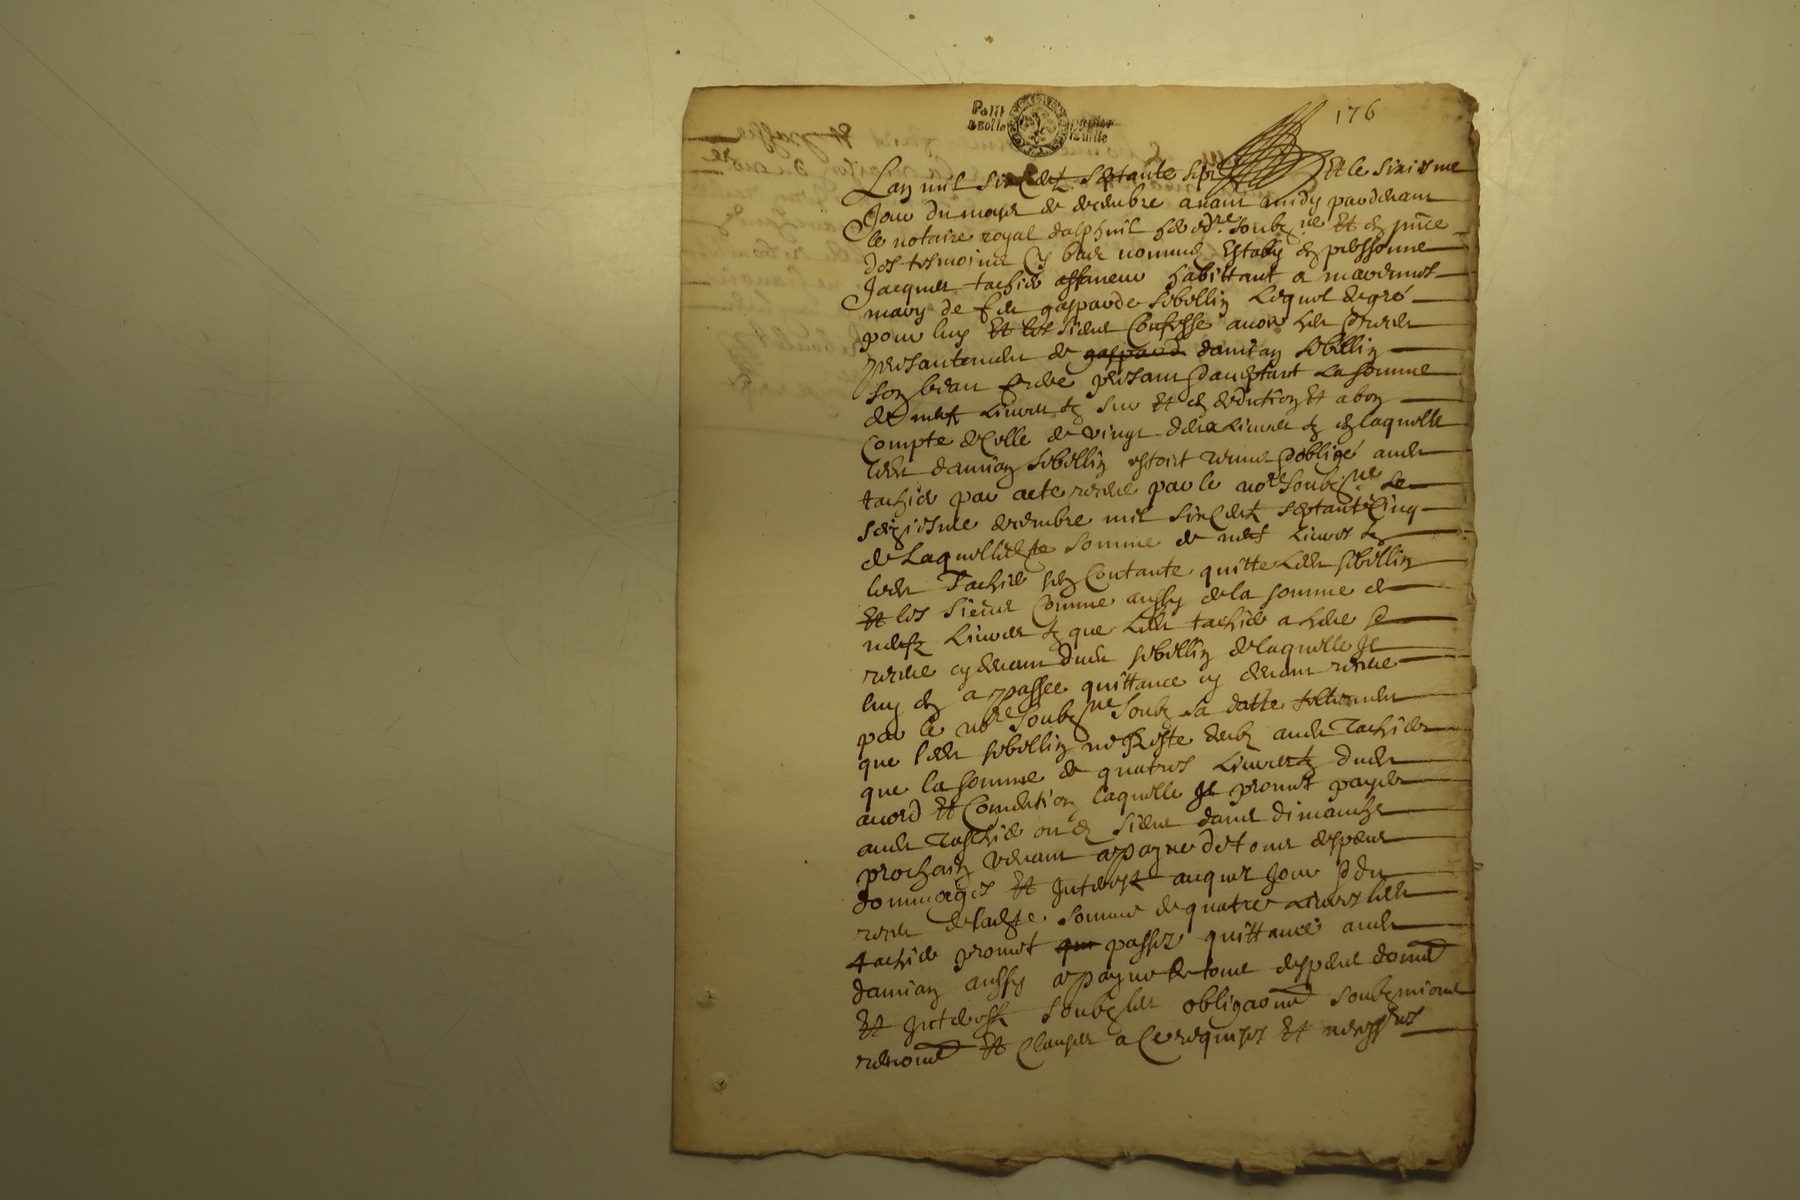 Petit papier
Roolle feuille
176
Lan mil six cent septante sept Et le sixiesme
Jour du moys de decembre avant midy pardevant
le notaire royal dalphinal soubzne Et en
des tesmoins cy bas nommes Estably en personne
Jacques tachier affaneur habittant a
mary de gasparde sebellin Lequel de gré
pour luy Et les siens Confesse avoir heu receu
presantement de gaspard damian sebellin
son beau frere presant aceptant La somme
de neuf Livres tz sur Et en deduction Et a bon
Compte de Celle de vingt deux Livres tz en laquelle
ledt damian sebellin estoit tenu oblige audt
tachier par acte receu par le nore soubzne Le
seziesme decembre mil six cent septante cinq
de Laquelle somme de neuf Livres tz
ledt Tachier Contante quitte Ledt sebellin
Et les siens Comme aussy de la somme de
neuf Livres tz que Ledt tachier a heu
receu cy devant dudt sebellin de laquelle Il
luy en a passee quittance cy devant receue
par le nore soubzne soubz sa datte
que ledt sebellin ne Reste audt Tachier
que la somme de quatres Livres tz dudt
Et Condition laquelle Il promet payer
audt Tachier ou es siens dans dimanche
prochain venant a payne de tous despens
dommages Et Interestz auquel Jour
somme de quatre Livres ledt
tachier promet que passer quittance audt
damian aussy a payne de tous despens
Et Interestz soubz les obligaons soubzmions
Et Clauses a Ce requises Et